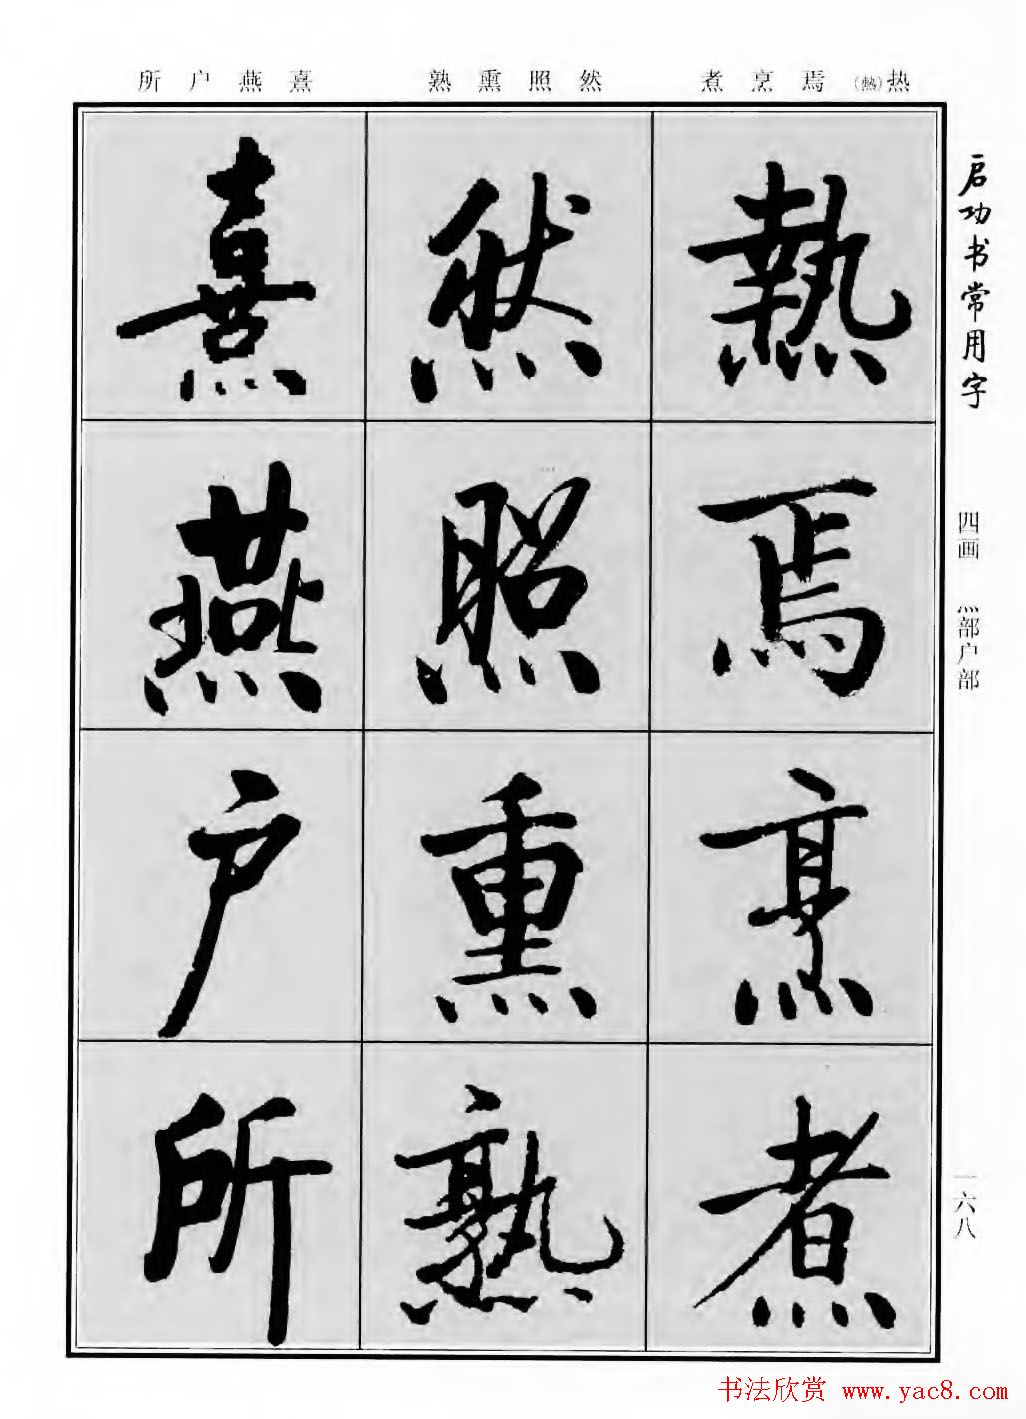 热(熱)焉烹煮 然照熏熟 熹燕户所
启功书常用字
四画 灬部户部
一六八
熱焉烹煮
然照熏熟
熹燕户所
书法欣赏 www.yac8.com